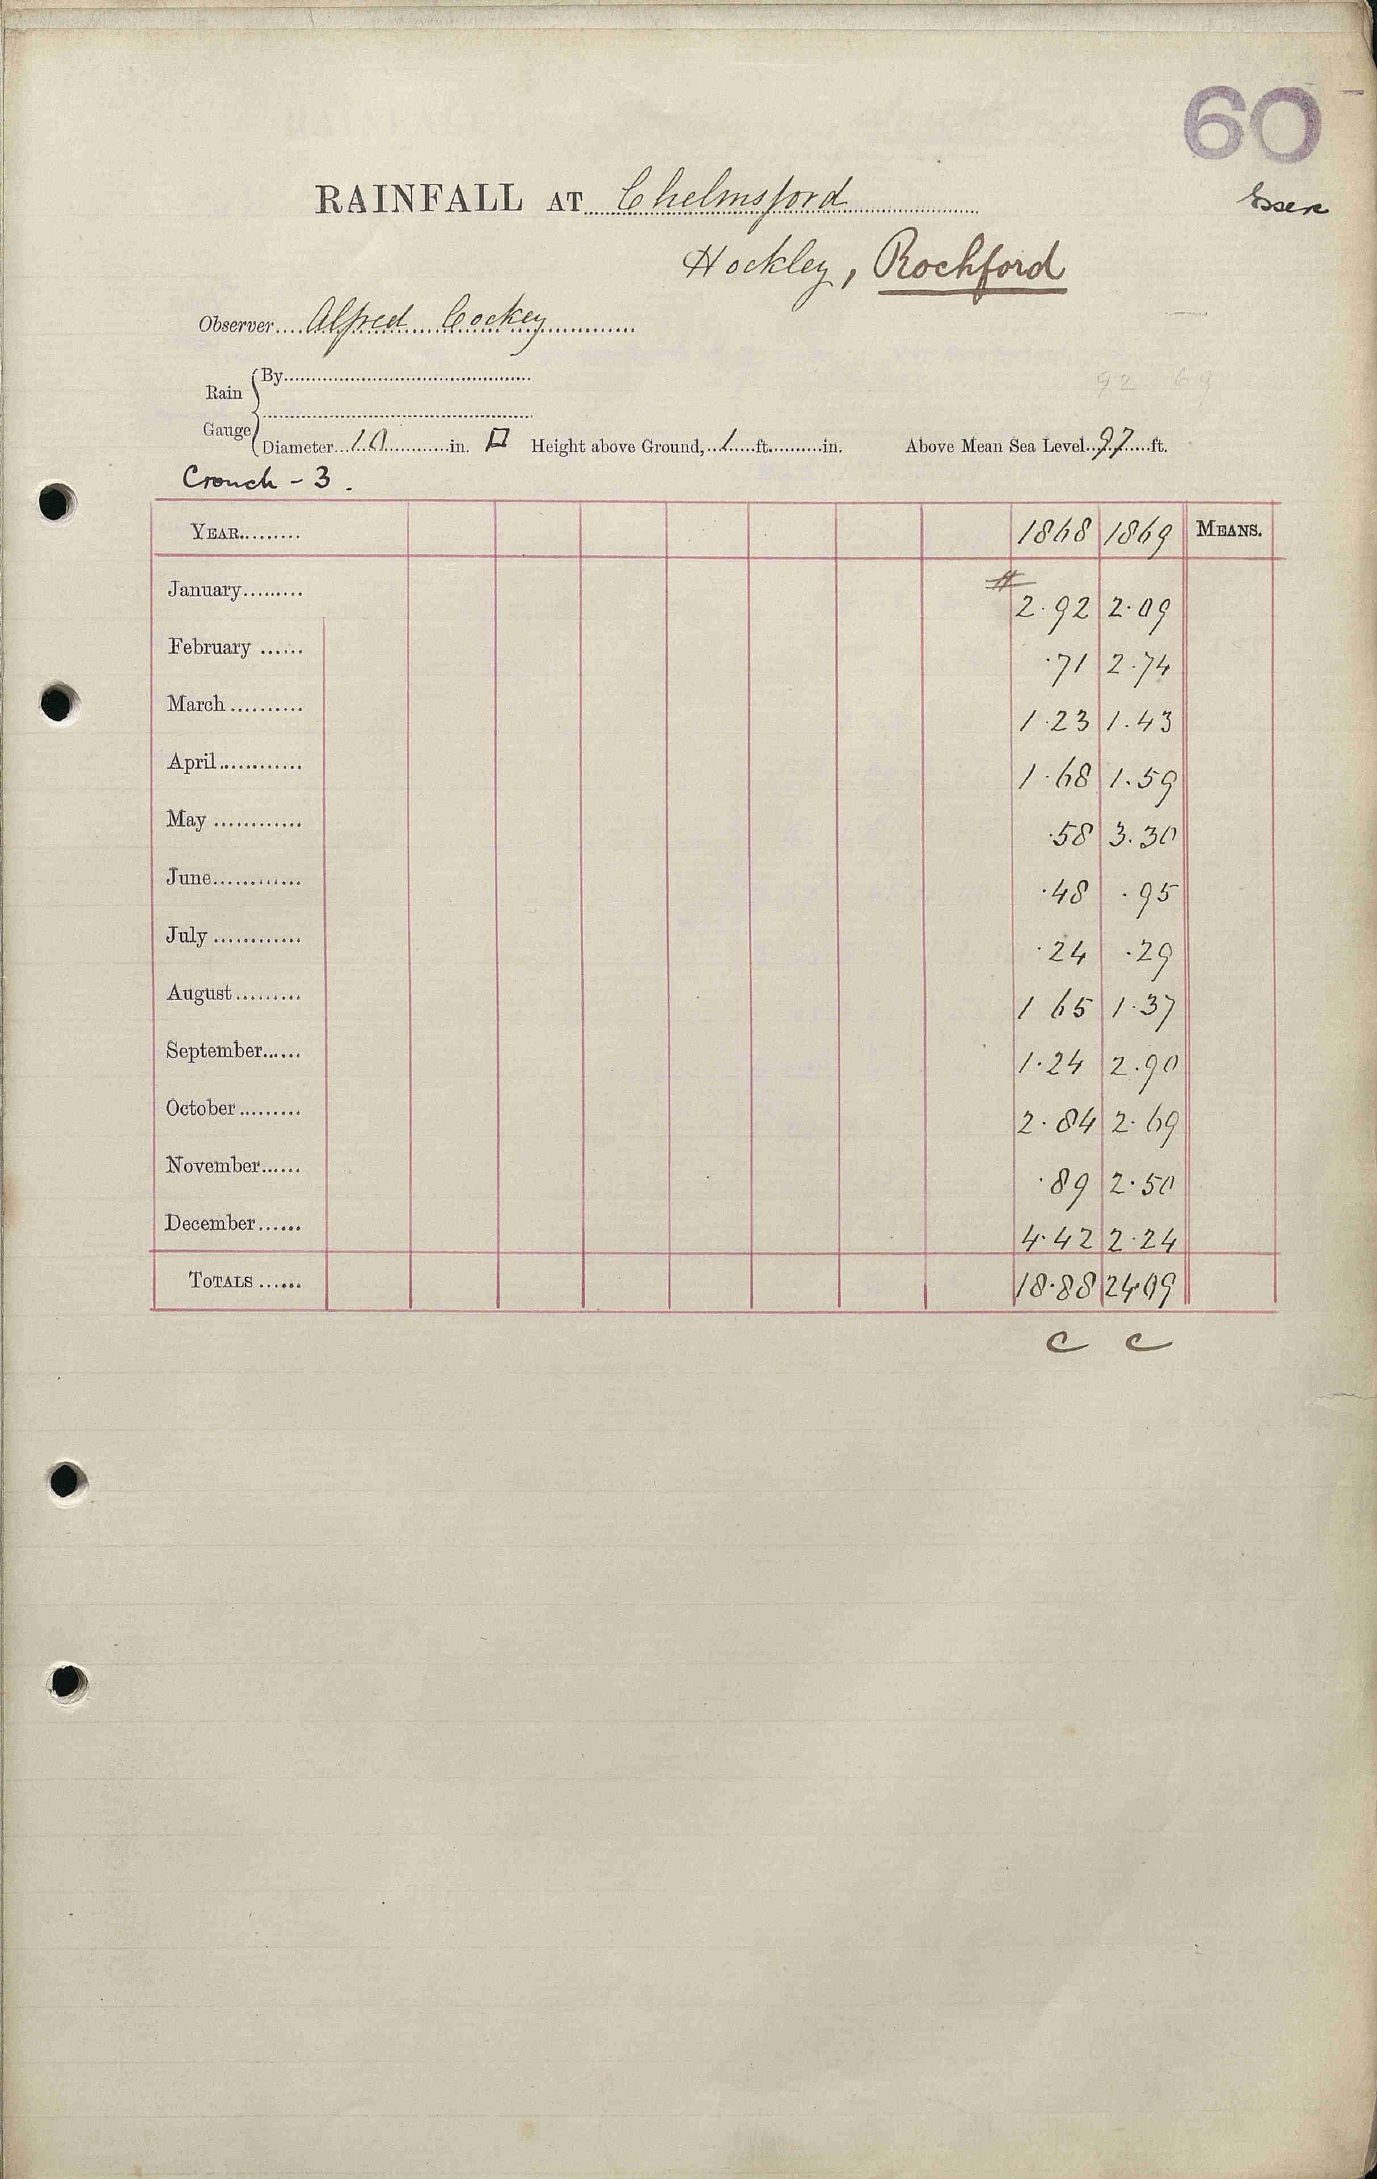 60
Essex
RAINFALL AT Chelmsford
Hockley, Rochford
Observer.... Alfred Cockey
92 69
Rain Gauge { By
Diameter... 10 ...in. Height above Ground,... 1 ...ft...in. Above Mean Sea Level... 97 ...ft.
Crouch - 3.
YEAR......... 1868 1869 MEANS.
January......... # 2.92 2.09
February ...... .71 2.74
March.......... 1.23 1.43
April............ 1.68 1.59
May ............ .58 3.30
June............ .48 .95
July ............ .24 .29
August......... 1 65 1.37
September...... 1.24 2.90
October......... 2.84 2.69
November...... .89 2.50
December...... 4.42 2.24
TOTALS ...... 18.88 24.09
C C